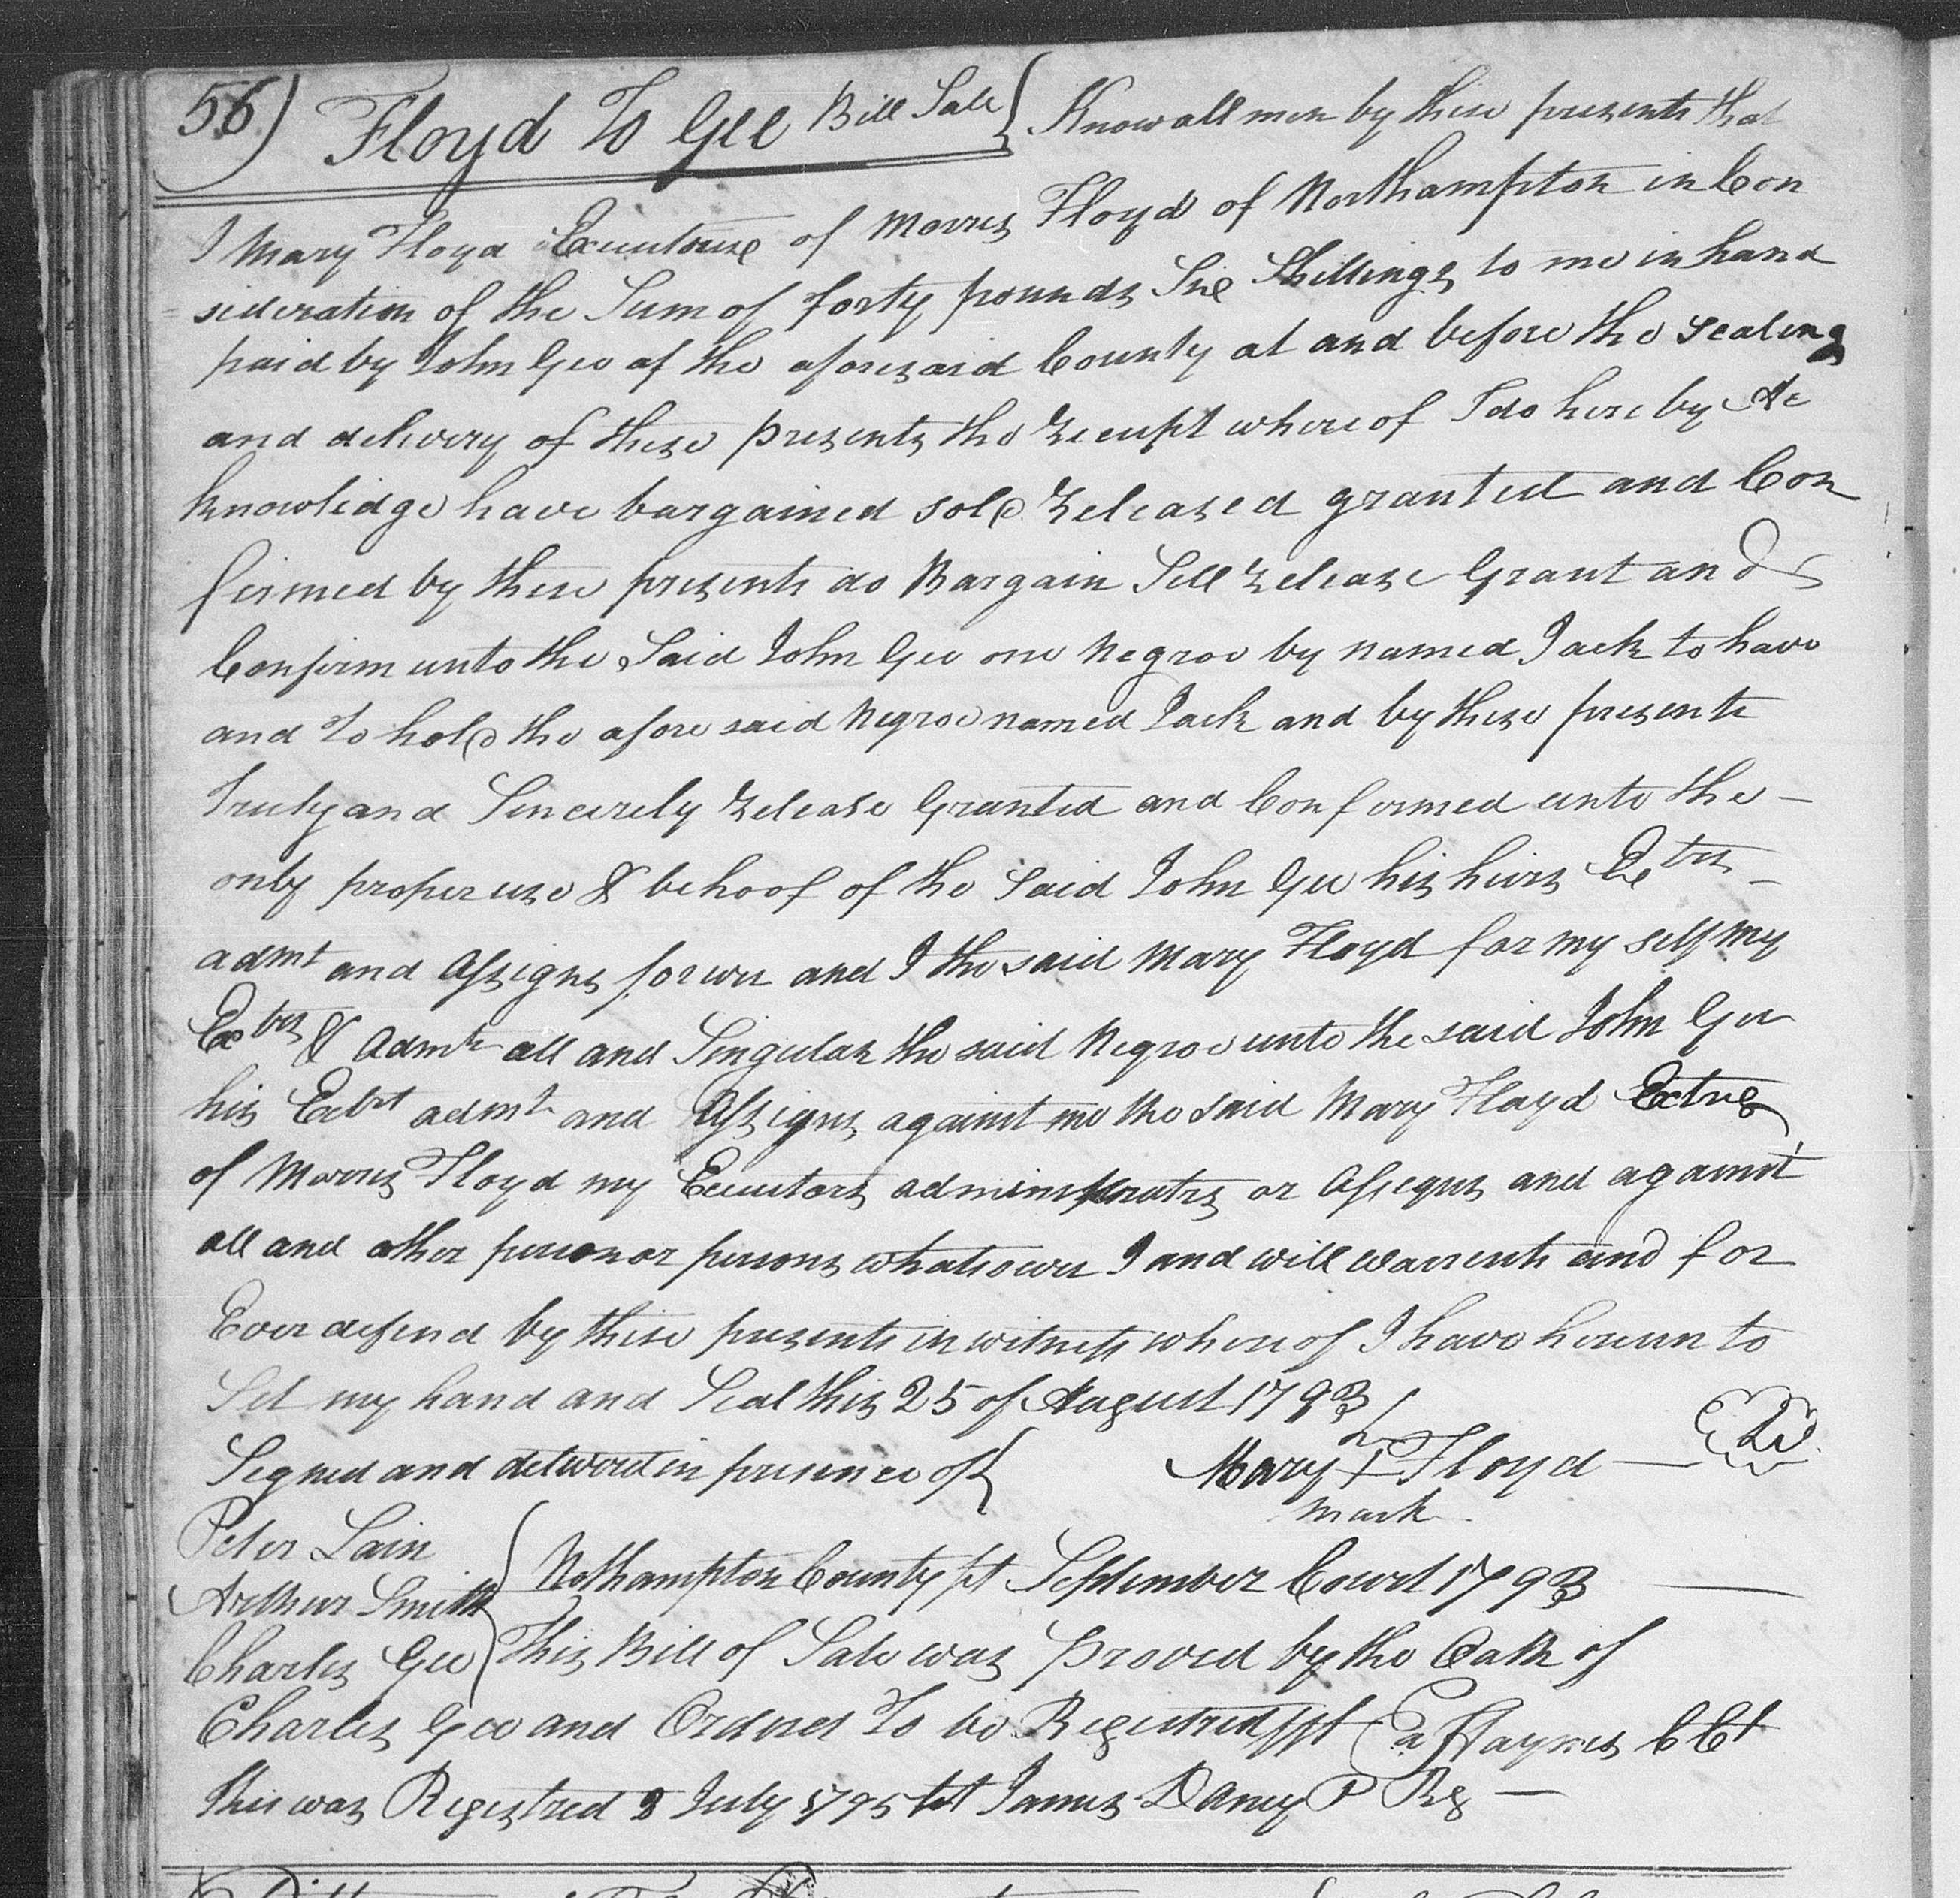 56) Floyd To Gee Bill Sale } Know all men by these presents that
I Mary Floyd Executorix of Morris Floyd of Northampton in Con
= sideration of the Sum of forty pounds Six Shillings to me in hand
paid by John Gee of the aforesaid County at and before the sealing
and delivery of these presents the receipt whereof I do hereby Ac
knowledge have bargained sold released granted and Con
firmed by these presents do Bargain Sell release Grant and
Confirm unto the Said John Gee one Negroe by named Jack to have
and To hold the afore said Negroe named Jack and by these presents
Truly and Sincerely release Granted and Conformed unto the –
only proper use & behoof of the Said John Gee his heirs Extrs –
admt and Assigns forever and I the said Mary Floyd for my self my
Extrs & Admts all and Singular the said Negroe unto the said John Gee
his Extrs admts and Assigns against me the said Mary Floyd Extrx
of Morris Floyd my Executors administrators or Assigns and against
all and other person or persons whatsoever I and will warrents and for
Ever defend by these presents in witness where of I have hereun to
Set my hand and Seal this 25 of August 1793
Signed and delivered in presence of } Mary + Floyd —
mark
Peter Lain
Arthur Smith } Nothampton County ſt September Court 1793 —
Charles Gee } This Bill of Sale was proved by the Oath of
Charles Gee and Ordered To be Registred Haynes C Ct
this was Registred 8 July 1795 tst James Dancy P Rg —